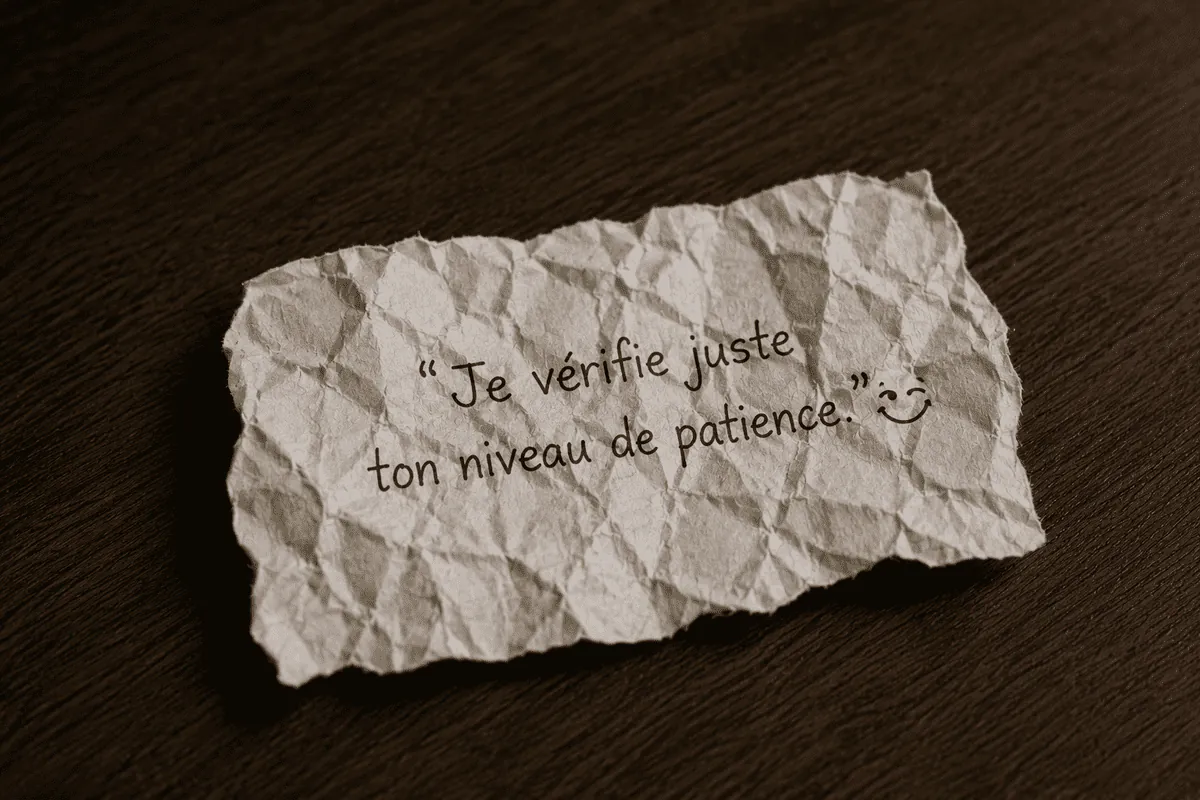 “Je vérifie juste
ton niveau de patience.”